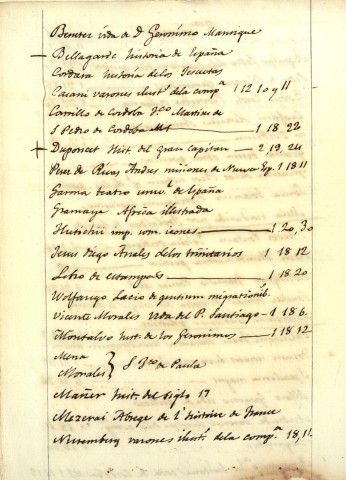 Benitez vida de D. Geronimo Manrique
Bellagarde historia de España
Cordara historia de los Jesuitas
Casani varones ilust.s de la comp.a 1 12. 10 y 11
Carrillo de Cordoba Fco Martires de
S Pedro de Cordoba Mt 1. 18. 22
Duponcet Hist. del Gran Capitan 2. 19. 24
Perez de Rivas Andres misiones de Nueva Esp. 1. 18 11
Garma teatro univ.l de España
Gramaye Africa ilustrada
Huttichii imp. rom. icones 1. 20, 30
Jesus diego Anales de los trinitarios 1 18 12
Libro de estampas 1 18 20
Wolfango Lacio de gentium migrationib.
Vicente Morales vida del P. Santiago 1 18 6.
Montalvo hist. de los Geronimos 1 18 12
Mena
Morales } S. Fco de Paula
Mañer hist. del siglo 17
Mezerai Abrege de l'histoire de France
Nieremberg varones ilust.s de la comp.a 18, 11.